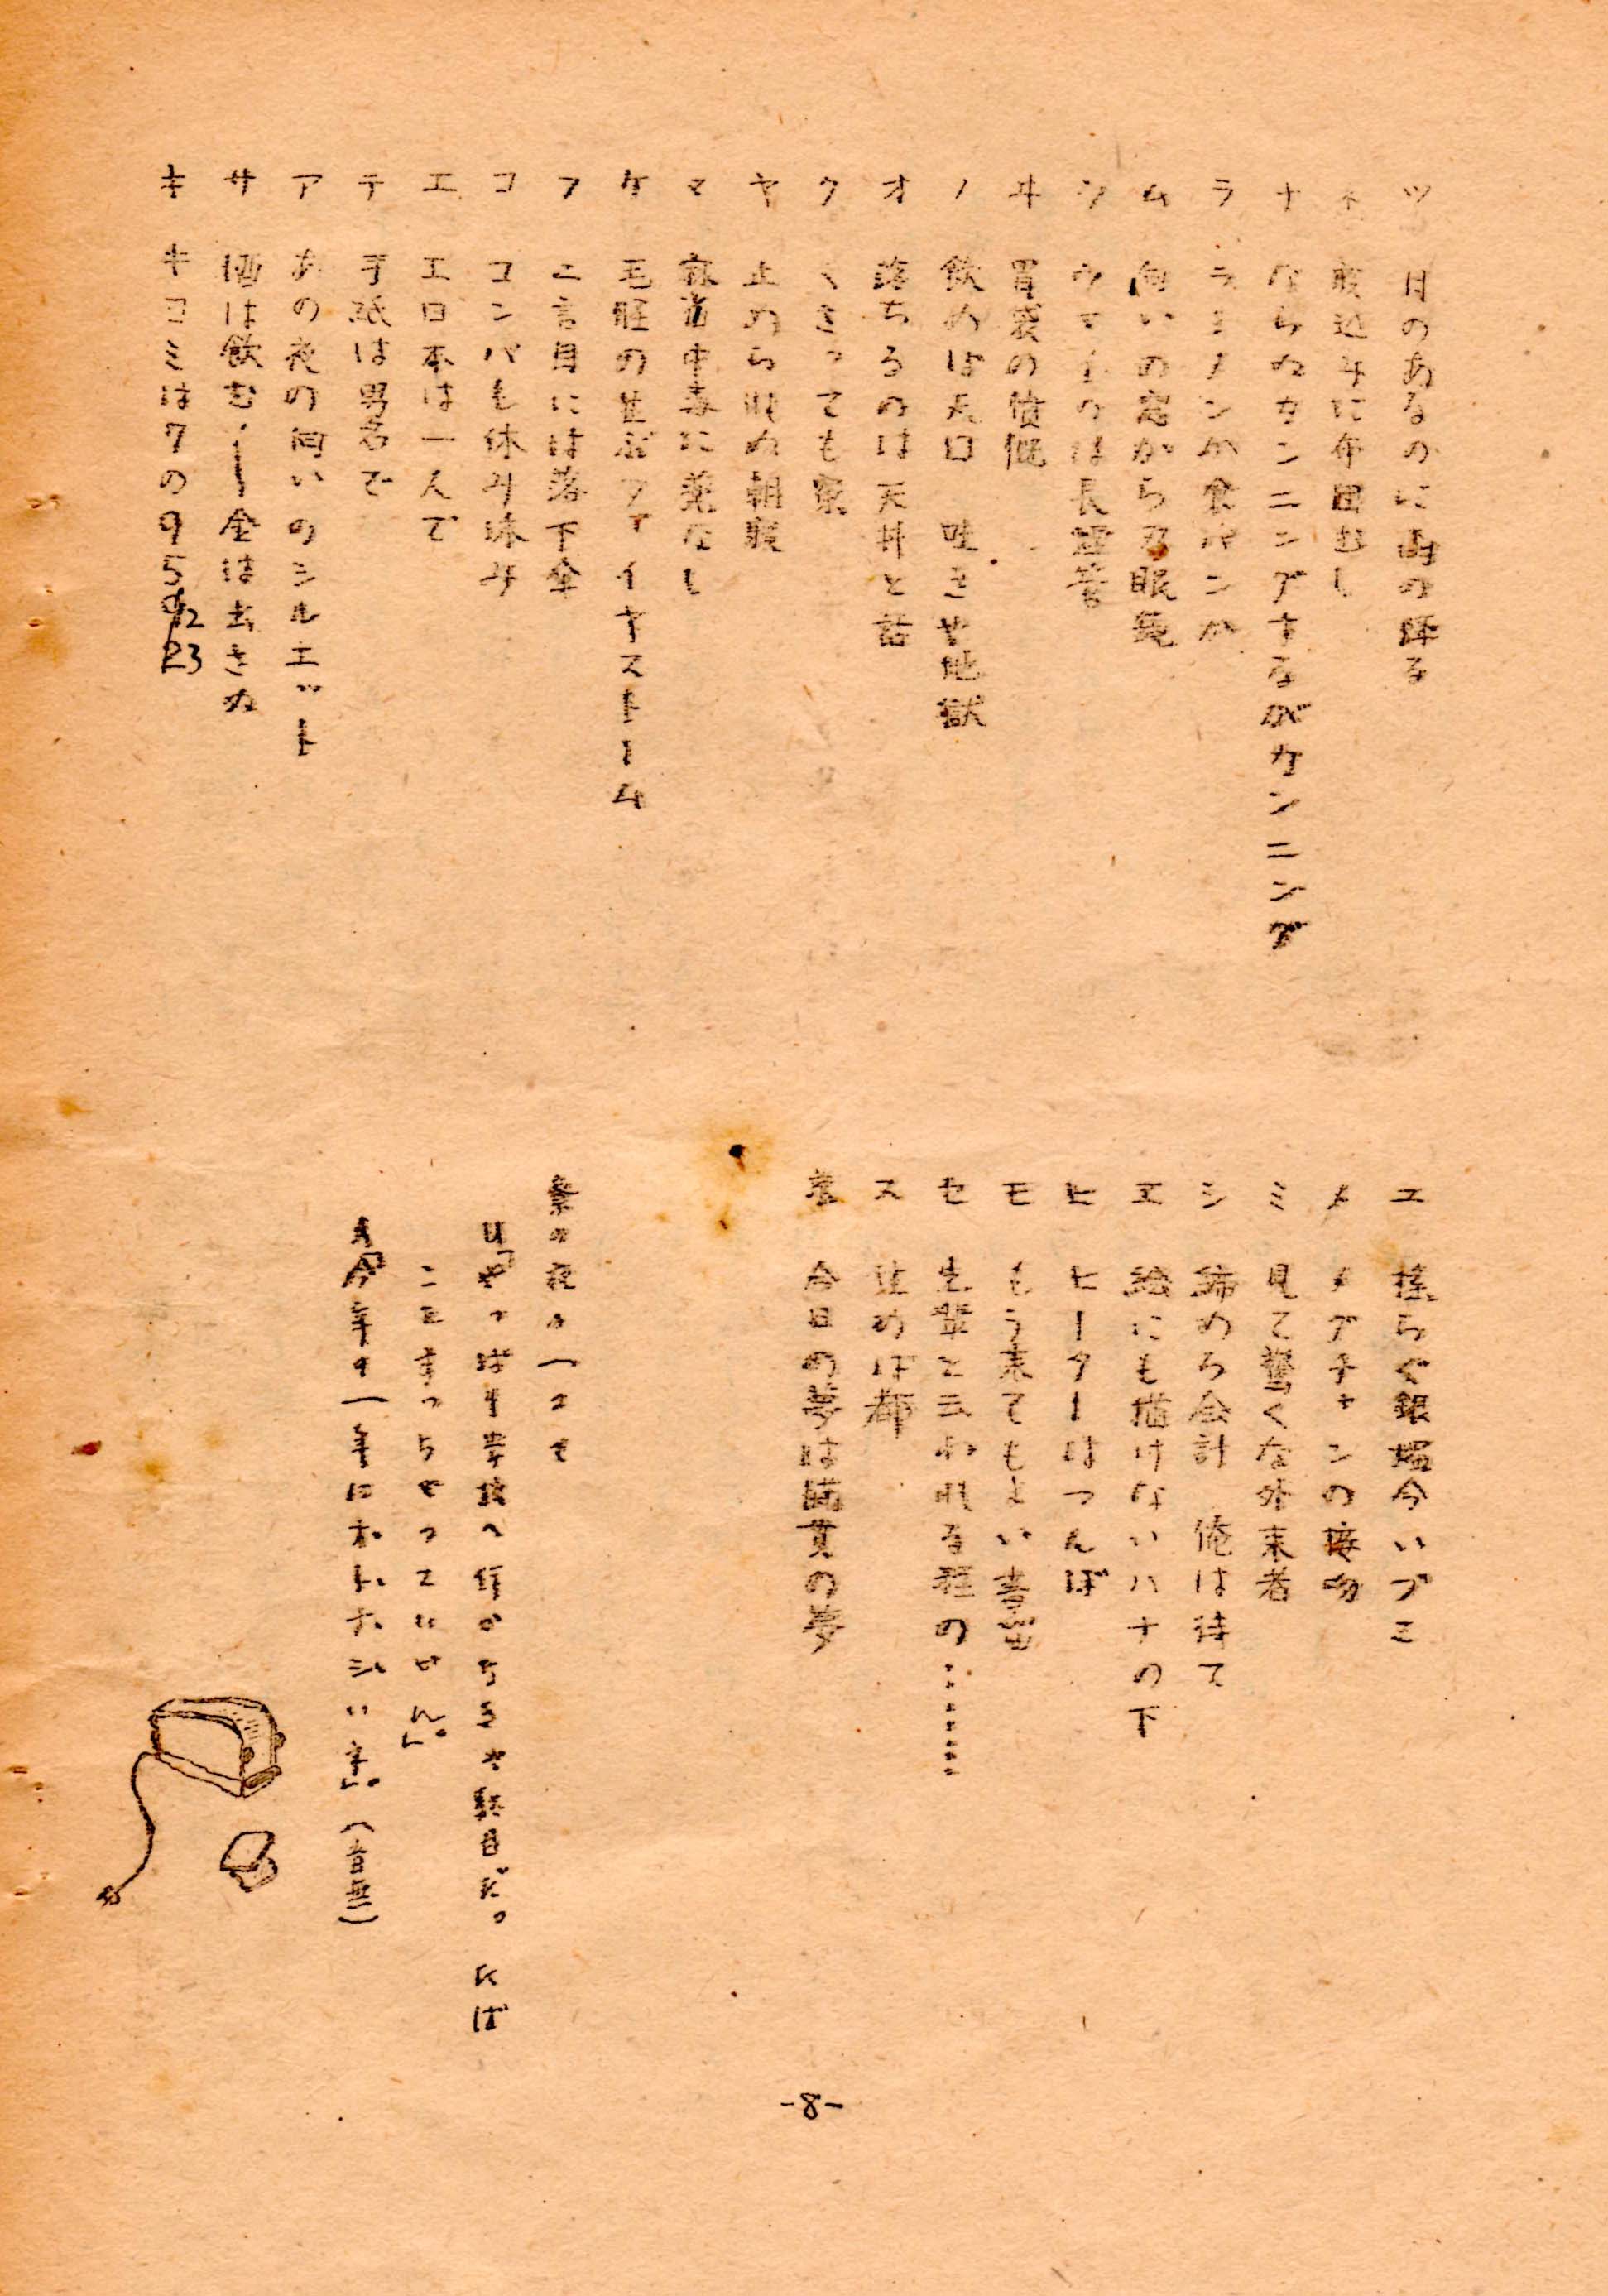 ツ 月のあるのに雨の降る
ネ 寝込みに布団むし
ナ ならぬカンニングするがカンニング
ラ ラーメンか食パンか
ム 向いの窓から双眼鏡
ウ ウマイのは長
ヰ 胃袋の憤慨
ノ 飲めば天口 吐きや地獄
オ 落ちるのは天丼と話
ク くさっても寮
ヤ 止めら眠ぬ朝寝
マ 麻雀中毒に薬なし
ケ 毛脛の並ぶファイヤストーム
フ 二言目には落下傘
コ コンパも休み休み
エ エロ本は一人で
テ 手紙は男名で
ア あの夜の向いのシルエット
サ 酒は飲む・ー金は出さぬ
キ キコミは7の95 1223
ユ 揺らぐ銀燭今いづこ
メ メグチャンの接吻
ミ 見て驚くな外来者
シ 締めろ会計 俺は待て
エ 絵にも描けないハナの下
ヒ ヒーターはつんぼ
モ もう来てもよい書留
セ 先輩と云われる程の………
ス 住めば都
京 今日の夢は臨貫の夢
寮の夜の一コマ
H「やっぱり学校へ行かなきゃ駄目だ。Kば
A「今年の一年におとなしい
-8-